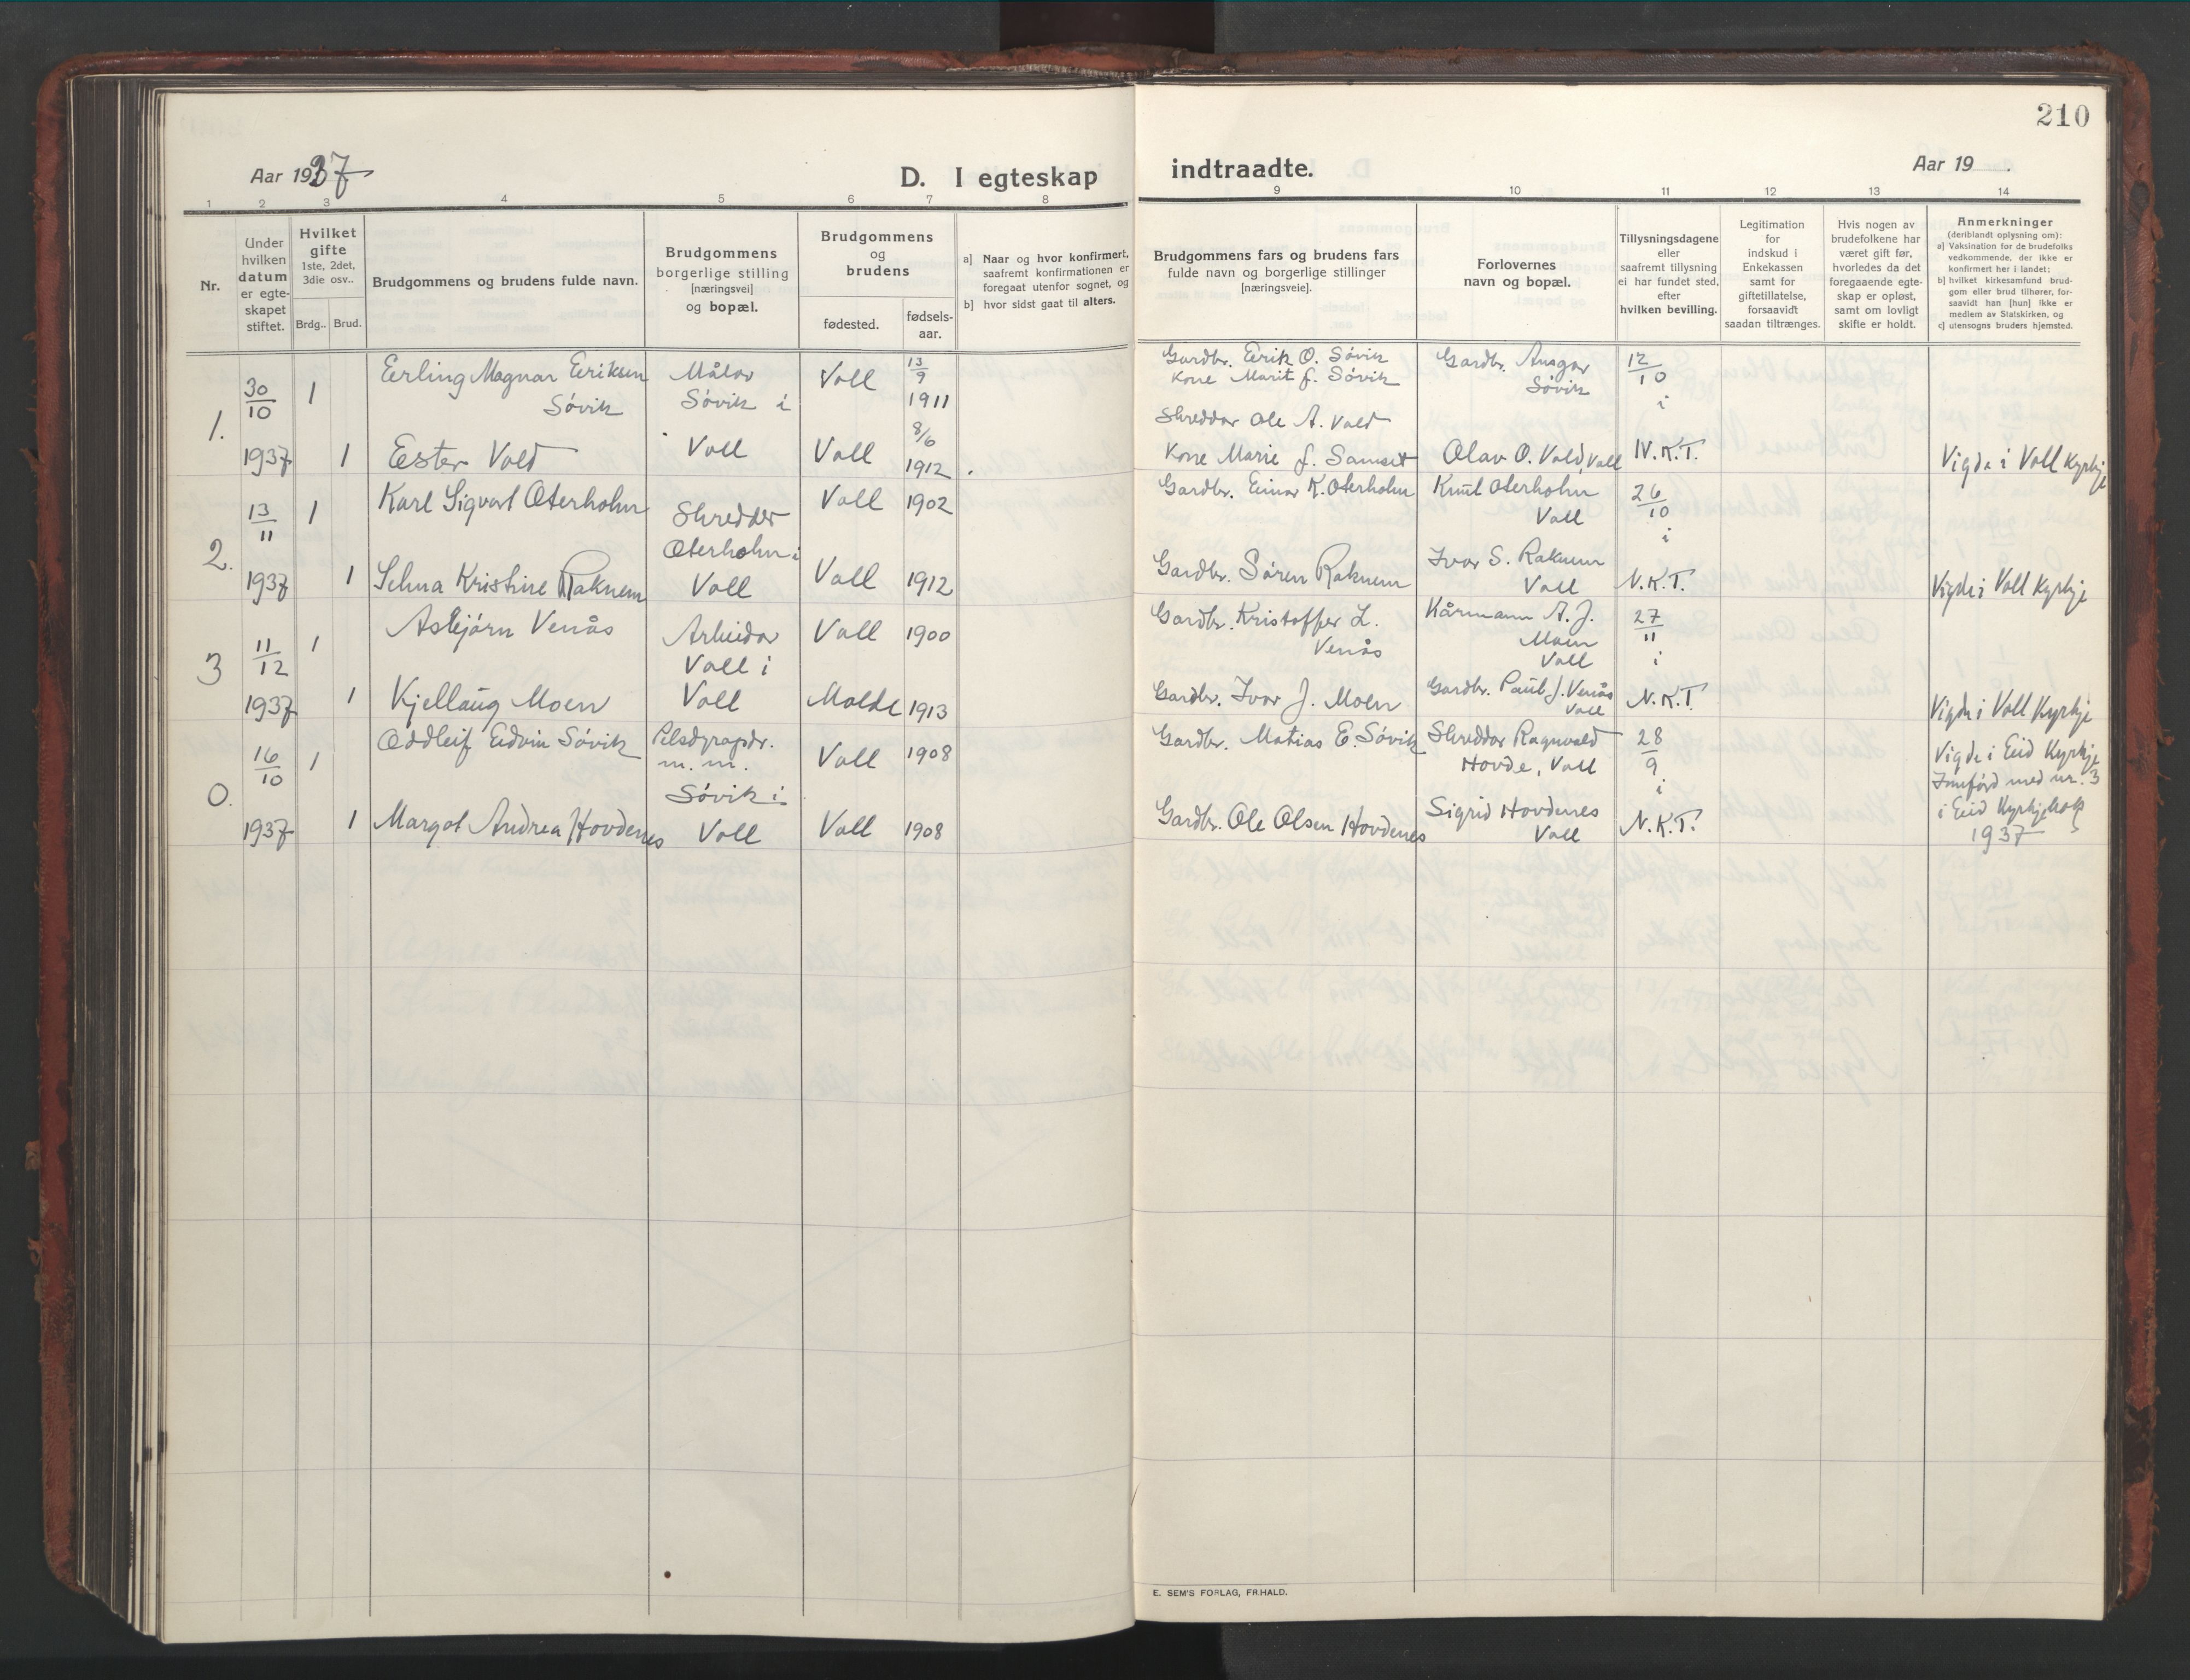 210
Aar 1937
D. I egteskap indtraadte.
Aar 19 .
1 2 3 4 5 6 7 8 9 10 11 12 13 14
Nr.
Under hvilken datum er egte-skapet stiftet.
Hvilket gifte
1ste, 2det, 3die osv..
Brdg.. Brud.
Brudgommens og brudens fulde navn.
Brudgommens borgerlige stilling [næringsvei] og bopæl.
Brudgommens og brudens
fødested. fødsels-aar.
a] Naar og hvor konfirmert, saafremt konfirmationen er foregaat utenfor sognet, og
b] hvor sidst gaat til alters.
Brudgommens fars og brudens fars fulde navn og borgerlige stillinger [næringsveie].
Forlovernes navn og bopæl.
Tillysningsdagene eller saafremt tillysning ei har fundet sted, efter hvilken bevilling.
Legitimation for indskud i Enkekassen samt for giftetillatelse, forsaavidt saadan tiltrænges.
Hvis nogen av brudefolkene har været gift før, hvorledes da det foregaaende egte-skap er opløst, samt om lovligt skifte er holdt.
Anmerkninger
(deriblandt oplysning om):
a] Vaksination for de brudefolks vedkommende, der ikke er konfirmert her i landet;
b] hvilket kirkesamfund brud-gom eller brud tilhører, for-saavidt han [hun] ikke er medlem av Statskirken, og
c] utensogns bruders hjemsted.
1. 30/10 1937
1 Eerling Magnar Eeriksen Søvik
Målar Søvik i Voll
Voll 13/9 1911
Gardbr. Eerik O. Søvik
Kone Marit f. Søvik
Gardbr. Ansgar Søvik
12/10 i N.K.T.
1 Ester Vold
Voll 8/6 1912
Skreddar Ole A. Vold
Kone Marie f. Samset
Olav O. Vold Voll
Vigde i Voll Kyrkje
2. 13/11 1937
1 Karl Sigvart Oterholm
Skredder Oterholm i Voll
Voll 1902
Gardbr. Einar K. Oterholm
Knut Oterholm Voll
26/10 i N.K.T.
1 Selma Kristine Raknem
Voll 1912
Gardbr. Søren Raknem
Ivar S. Raknem Voll
Vigde i Voll Kyrkje
3 11/12 1937
1 Asbjørn Venås
Arbeidar Voll i Voll
Voll 1900
Gardbr. Kristoffer L. Venås
Kårmann A. J. Moen Voll
27/11 i N.K.T.
1 Kjellaug Moen
Molde 1913
Gardbr. Ivar J. Moen
Gardbr. Paul J. Venås Voll
Vigde i Voll Kyrkje
0. 16/10 1937
1 Oddleif Edvin Søvik
Pelsdyropdr. m.m. Søvik i Voll
Voll 1908
Gardbr. Matias E. Søvik
Skreddar Ragnvald Hovde, Voll
28/9 i N.K.T.
1 Margot Andrea Hovdenes
Voll 1908
Gardbr. Ole Olsen Hovdenes
Sigrid Hovdenes Voll
Vigde i Eid Kyrkje
Innførd med nr. 3
i Eid Kyrkjebok
1937
E. SEM'S FORLAG, FR.HALD.